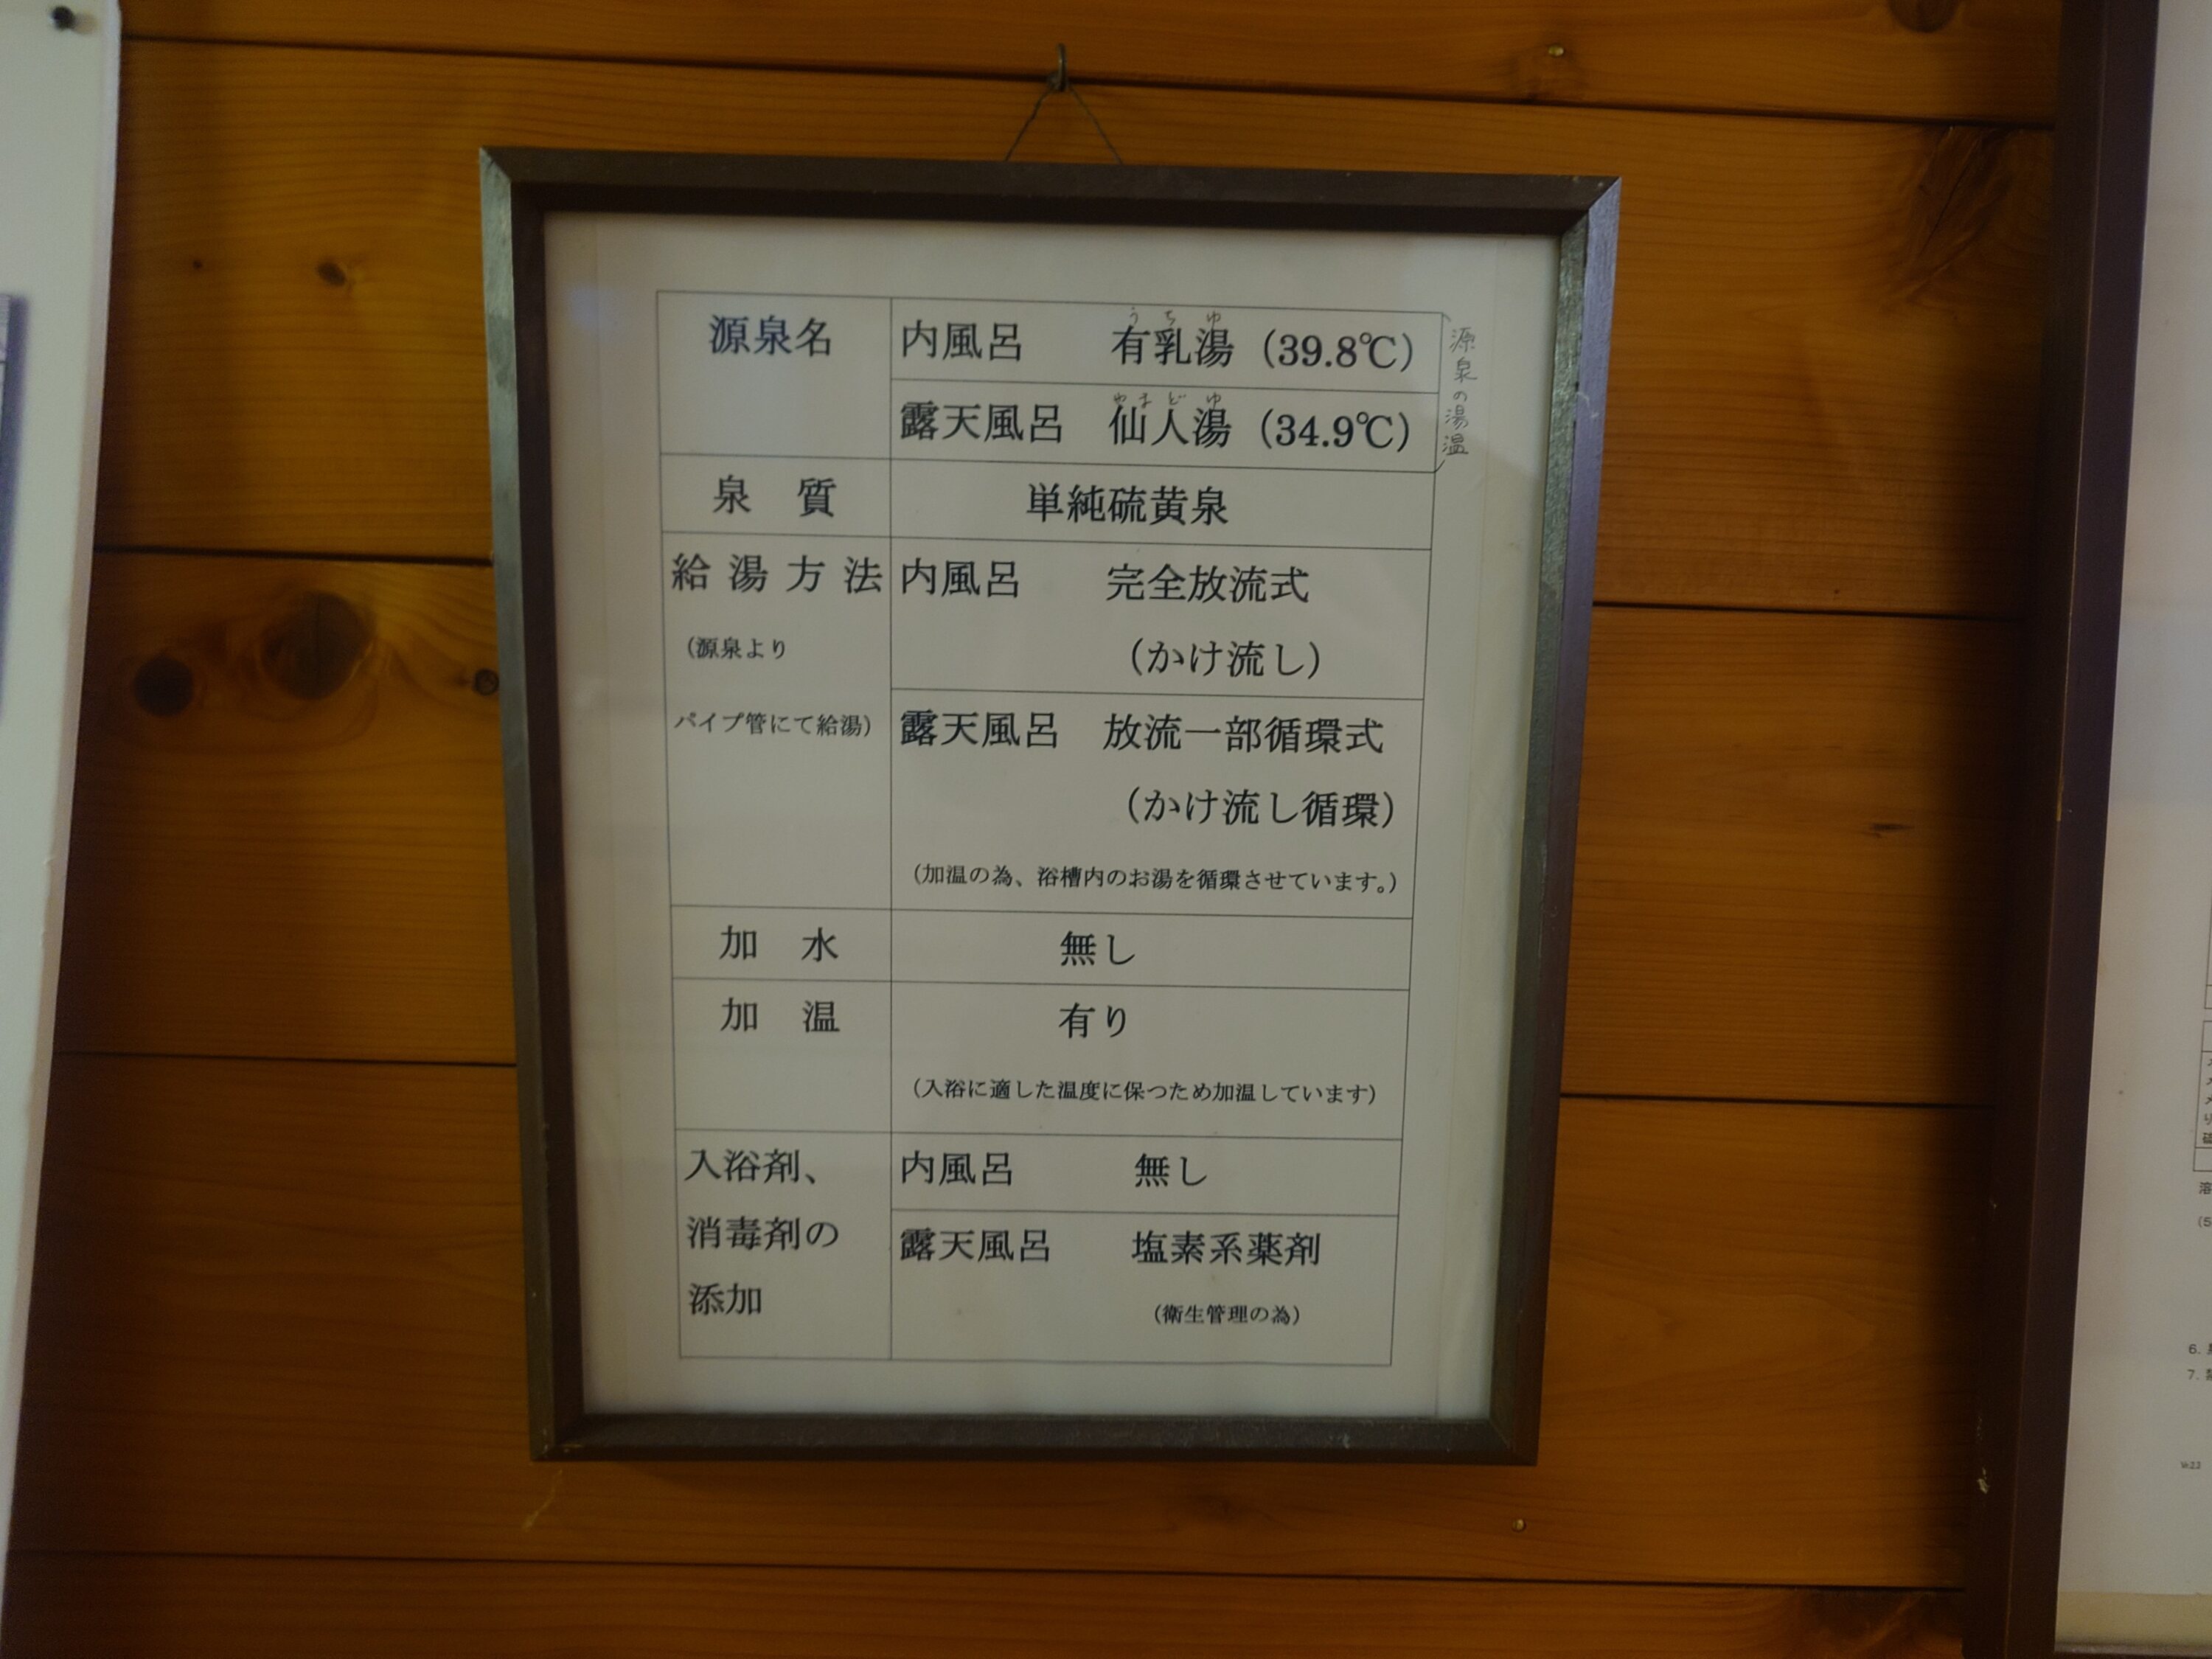 源泉名
内風呂 有乳湯（39.8℃）
うちゆ
露天風呂 仙人湯（34.9℃）
やまどゆ
源泉の湯温
泉 質
単純硫黄泉
給湯方法
（源泉より
パイプ管にて給湯）
内風呂 完全放流式
（かけ流し）
露天風呂 放流一部循環式
（かけ流し循環）
（加温の為、浴槽内のお湯を循環させています。）
加 水
無し
加 温
有り
（入浴に適した温度に保つため加温しています）
入浴剤、
消毒剤の
添加
内風呂 無し
露天風呂 塩素系薬剤
（衛生管理の為）
6.
7.